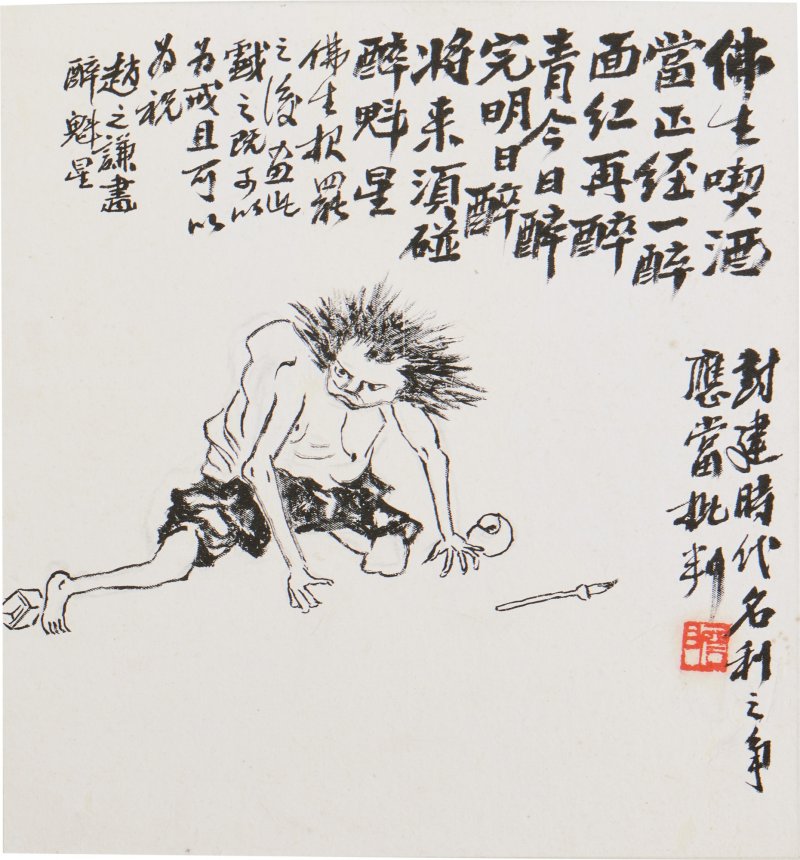 佛生喫酒
當正經一醉
面红再醉
青今日醉
完明日醉
将来須碰
醉魁星
佛生报罷
之後画此
戲之既可以
为戒且可以
为祝
趙之謙畫
醉魁星
封建時代名利之争
應當批判